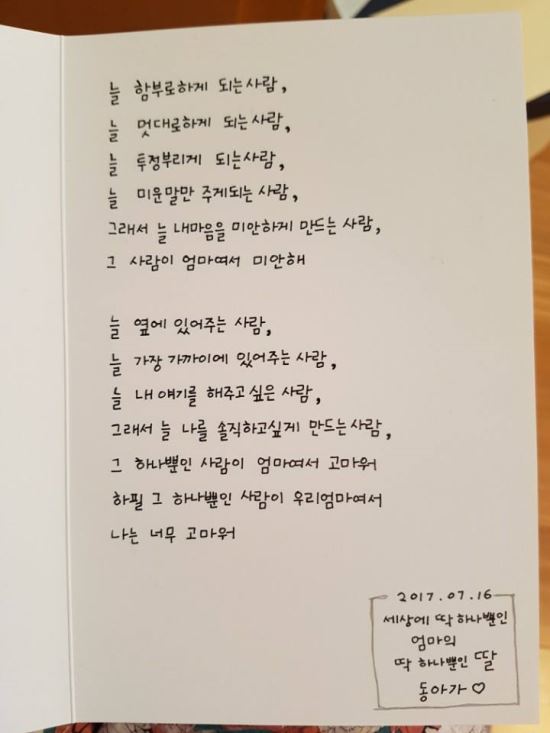 늘 함부로하게 되는사람,
늘 멋대로하게 되는사람,
늘 투정부리게 되는사람,
늘 미운말만 주게되는사람,
그래서 늘 내마음을 미안하게 만드는사람,
그 사람이 엄마여서 미안해
늘 옆에 있어주는 사람,
늘 가장 가까이에 있어주는사람,
늘 내 얘기를 해주고싶은 사람,
그래서 늘 나를 솔직하고싶게 만드는사람,
그 하나뿐인 사람이 엄마여서 고마워
하필 그 하나뿐인 사람이 우리엄마여서
나는 너무 고마워
2017.07.16
세상에 딱 하나뿐인
엄마의
딱 하나뿐인 딸
동아가♡